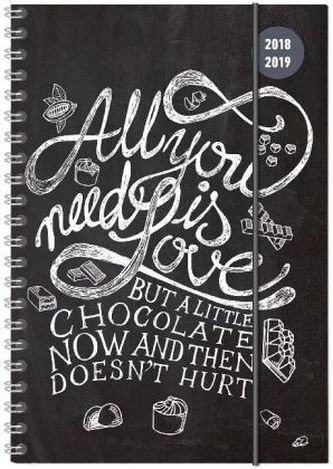 2018
2019
All you
need is
Love
BUT A LITTLE
CHOCOLATE
NOW AND THEN
DOESN'T HURT